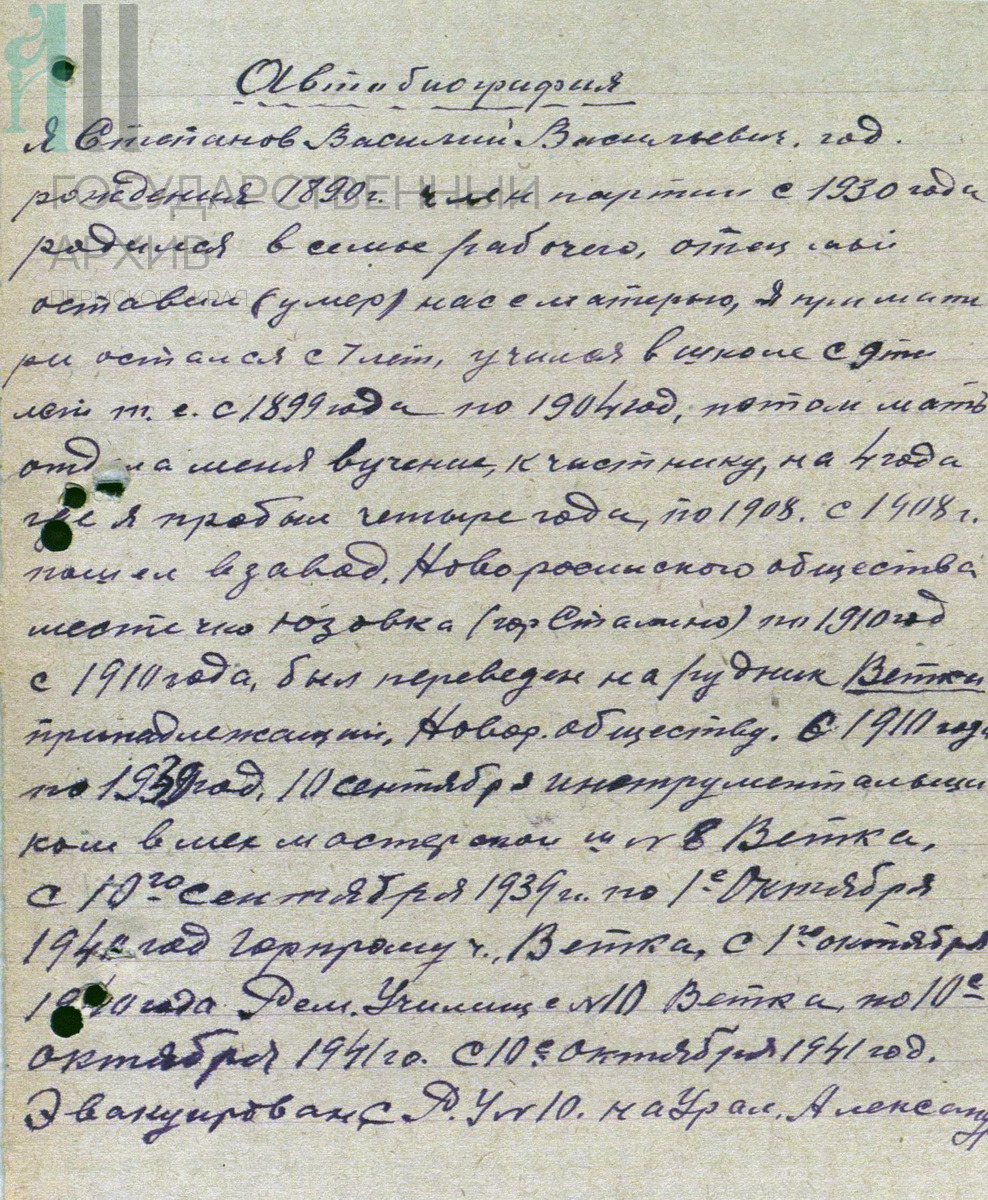 Автобиография
Я Степанов Василий Васильевич. год.
рождения 1890 г. член партии с 1930 года
родился в семье рабочего, отец мой
оставил (умер) нас с матерью, я при мате
ри остался с 7 лет, учился в школе с 9ти
лет т. е. с 1899 года по 1904 год, потом мать
отдала меня в учение, к частнику, на 4 года
где я пробыл четыре года, по 1908. с 1908 г.
пошел в завод, Новоросийского общества
местечко Юзовка (гор Сталино) по 1910 год
с 1910 года, был переведен на рудник Ветки
принадлежащий, Новор. обществу. С 1910 года
по 1939 год, 10 сентября инструментальщи
ком в мех мастерской ш № 8 Ветка,
с 10го сентября 1939 г. по 1е Октября
1940 год Горпромуч., Ветка, с 1го октября
1940 года Рем. Училище №10 Ветка, по 10е
октября 1941 го. С 10е октября 1941 год.
Эвакуирован, с Р. У №10. на Урал, Александ
ГОСУДАРСТВЕННЫЙ
АРХИВ
ПЕРМСКОГО КРАЯ